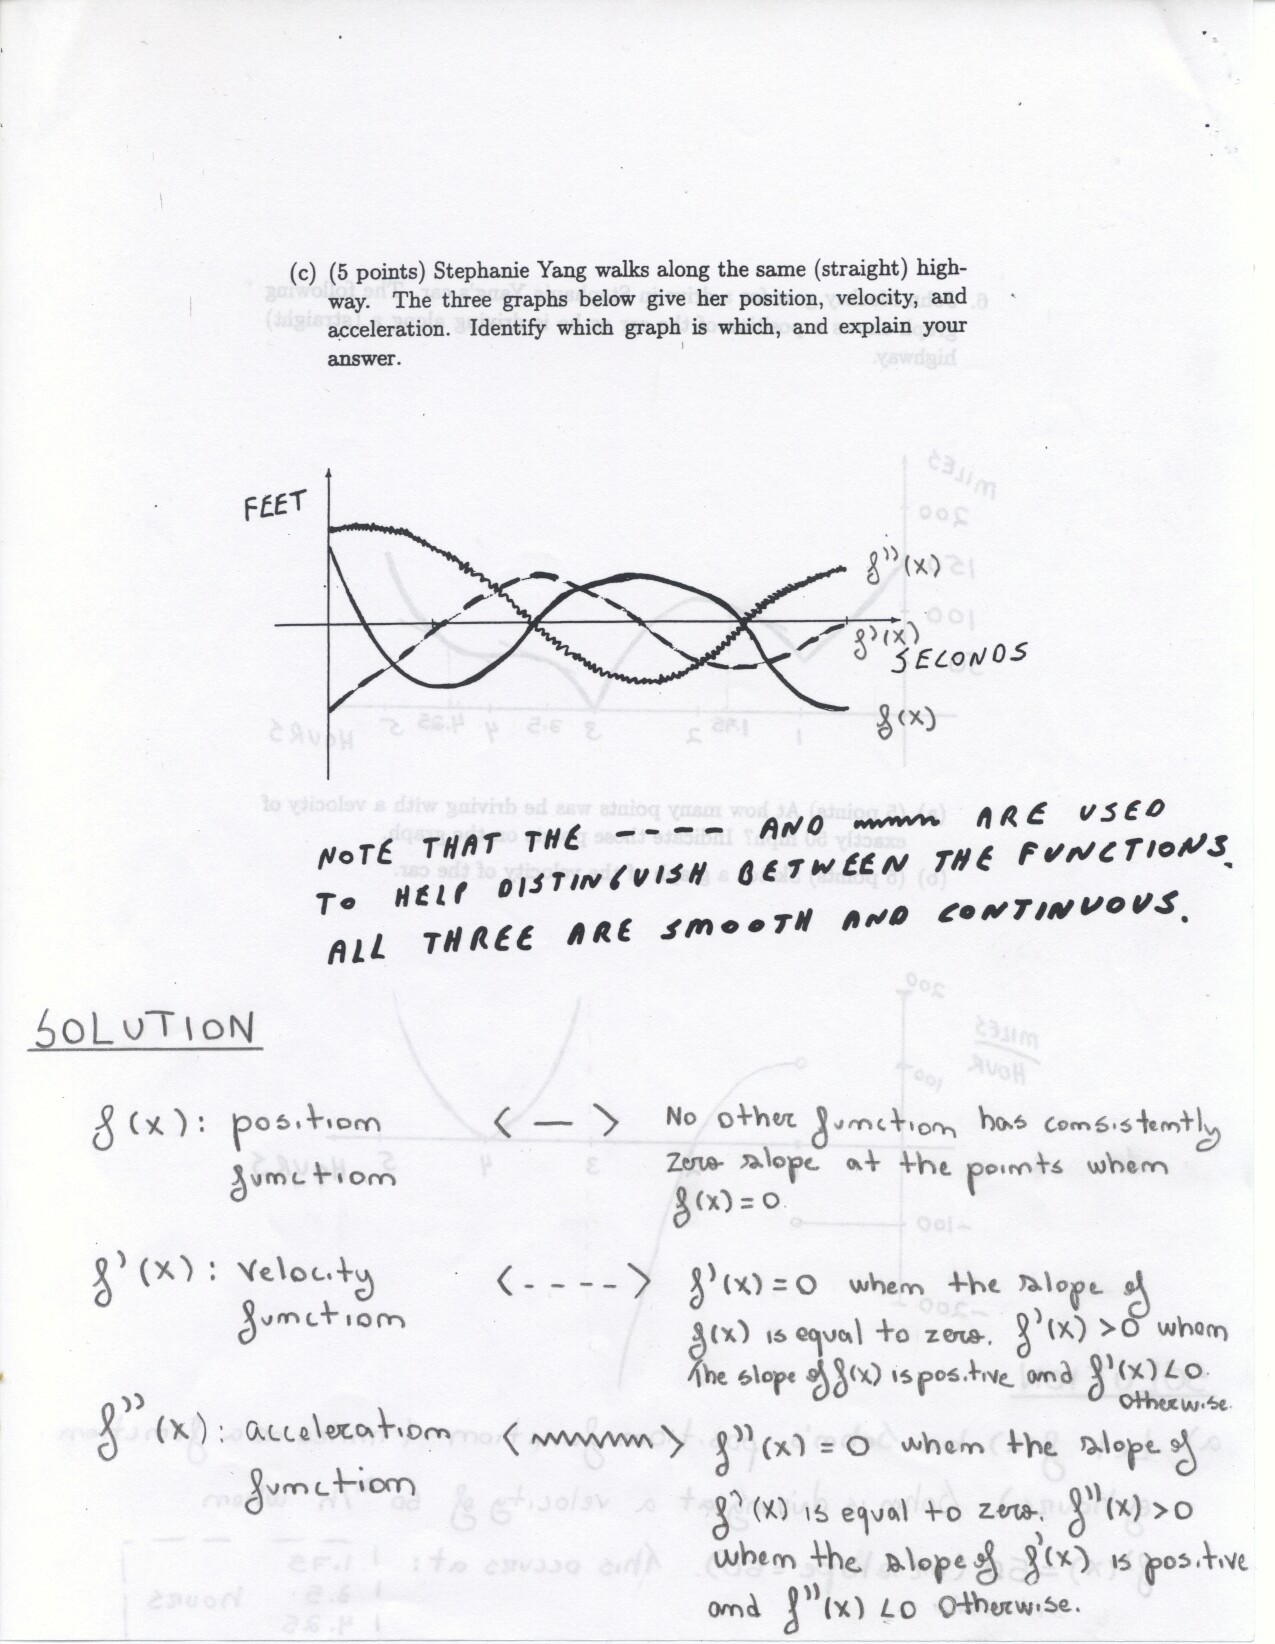 (c) (5 points) Stephanie Yang walks along the same (straight) high-
way. The three graphs below give her position, velocity, and
acceleration. Identify which graph is which, and explain your
answer.
FEET
f''(x)
f'(x)
SECONDS
f(x)
NOTE THAT THE ---- AND ARE USED
TO HELP DISTINGUISH BETWEEN THE FUNCTIONS.
ALL THREE ARE SMOOTH AND CONTINUOUS.
SOLUTION
f(x): position < — > No other function has consistently
function zero slope at the points when
f(x) = 0.
f'(x): velocity < - - - - > f'(x) = 0 when the slope of
function f(x) is equal to zero. f'(x) > 0 when
the slope of f(x) is positive and f'(x) < 0
otherwise.
f''(x): acceleration < > f''(x) = 0 when the slope of
function f'(x) is equal to zero. f''(x) > 0
when the slope of f'(x) is positive
and f''(x) < 0 otherwise.